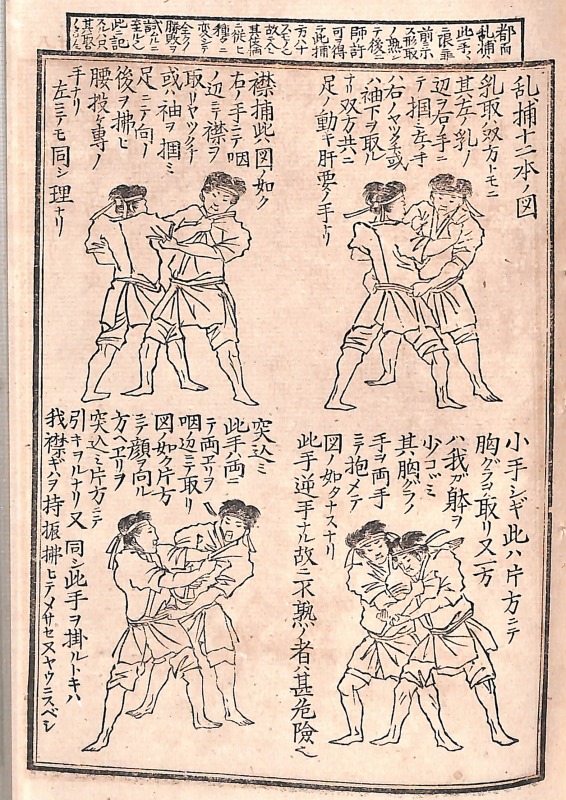 都而
乱捕
此手
前ニ示
ス形取
ノ熟シ
テ後ニ
師許
可ヲ得
テ此捕
方ハ十
ニ従ヒ
種々ニ
変シテ
全ク
勝負ヲ
試ルニ
此ニ記
スル只
其取
乱捕十二本ノ図
乳取ハ双方トモニ
其左ノ乳ノ
辺ヲ右ノ手ニ
テ掴ミ左ノ手
ハ右ノヤツクチ或
ハ袖下ヲ取ル
ナリ双方共ニ
足ノ動キ肝要ノ手ナリ
襟捕此図ノ如ク
右ノ手ニテ咽
ノ辺ニテ襟ヲ
取リヤツクチ
或ハ袖ヲ掴ミ
足ニテ向ノ
後ヲ拂ヒ
腰投ケ専ノ
手ナリ
左ニテモ同シ理ナリ
小手シギ此ハ片方ニテ
胸グラヲ取リ又一方
ハ我ガ躰ヲ
少コヾミ
其胸グラノ
手ヲ両手
ニテ抱メテ
図ノ如クナスナリ
此手逆手ナル故ニ不熟ノ者ハ甚危険也
突込ミ
此手両ニ
テ両エリヲ
咽ノ辺ニテ取リ
図ノ如ク片方
ニテ顔ヲ向ル
方ヘエリヲ
突込ミ片方ニテ
引キヲルナリ又同シ此手ヲ掛ルトキハ
我襟ギハヲ持振拂ヒテメサセヌヤウニスベシ